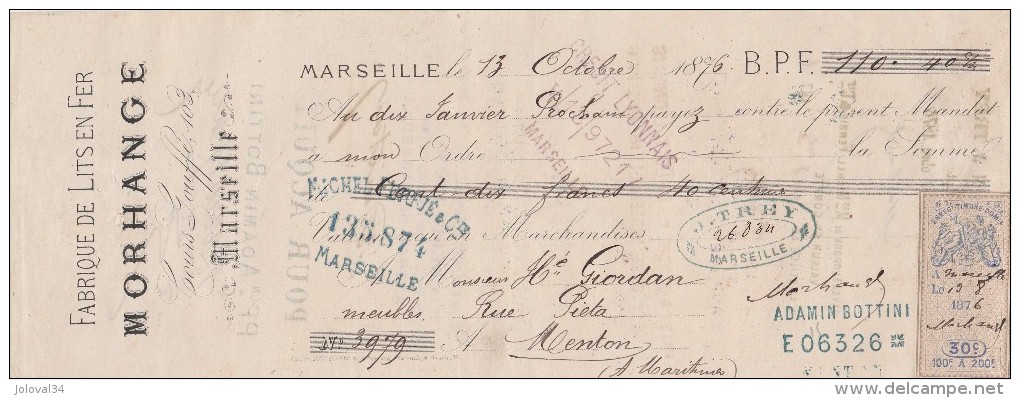 FABRIQUE DE LITS EN FER
MORHANGE
103
Marseille
MARSEILLE, le 13 Octobre 1876 B.P.F. 110. 40
Au dix Janvier Prochain payez contre le présent Mandat
à mon Ordre la Somme
de Cent dix francs 40 centimes
Valeur en Marchandises
A Monsieur He Giordan
meubles, Rue Pieta
No 3979 A Menton
(A Maritimes)
CREDIT LYONNAIS
MARSEILLE
& CIE
135874
MARSEILLE
J. TREY
26834
MARSEILLE
ADAMIN BOTTINI
E06326
MENTON
A Marseille
Le 13 8
1876
30c
100f A 200f
POUR ACQUIT
ADAMIN BOTTINI
joloval34
delcampe.net